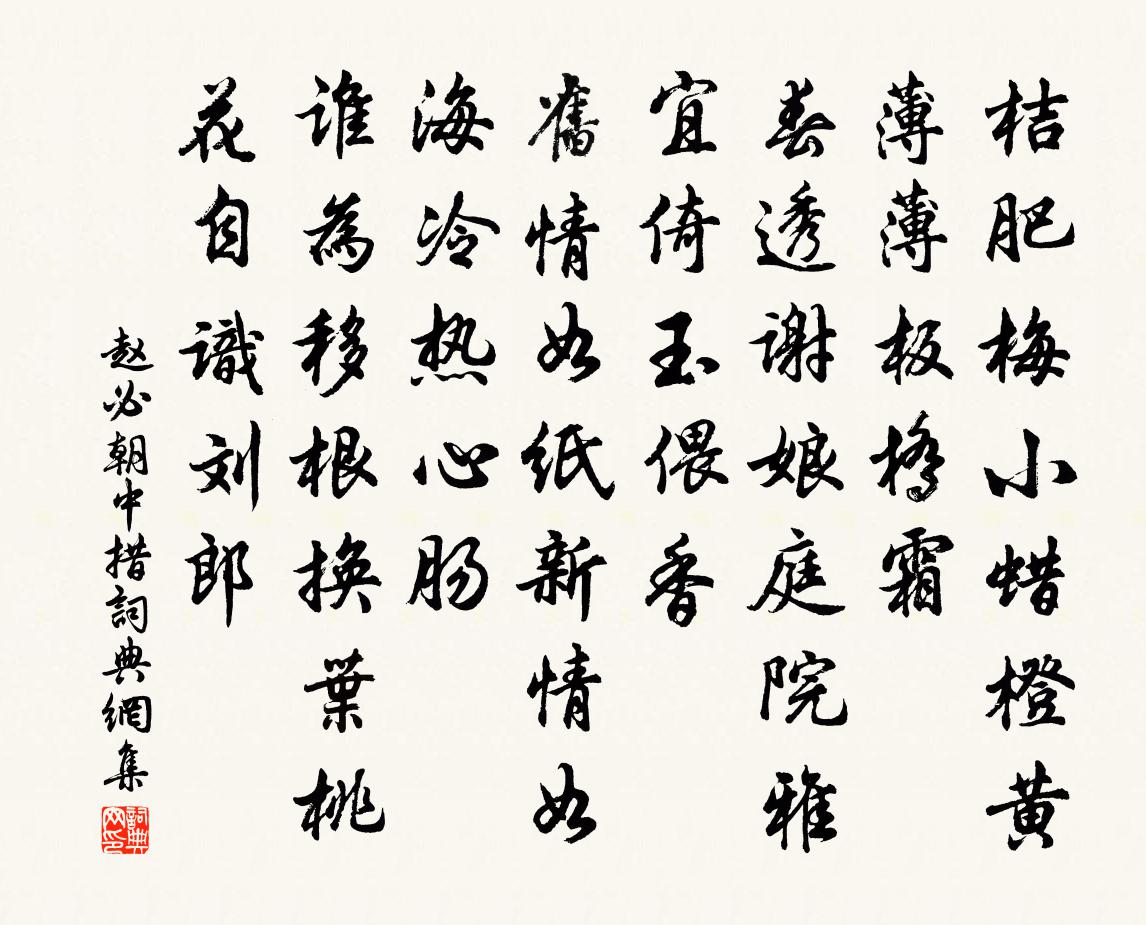 桔肥梅小蜡橙黄
薄薄板橋霜
春透谢娘庭院雅
宜倚玉偎香
舊情如纸新情如
海冷热心肠
谁為移根换葉桃
花自識刘郎
赵必朝中措詞典網集
詞典网印